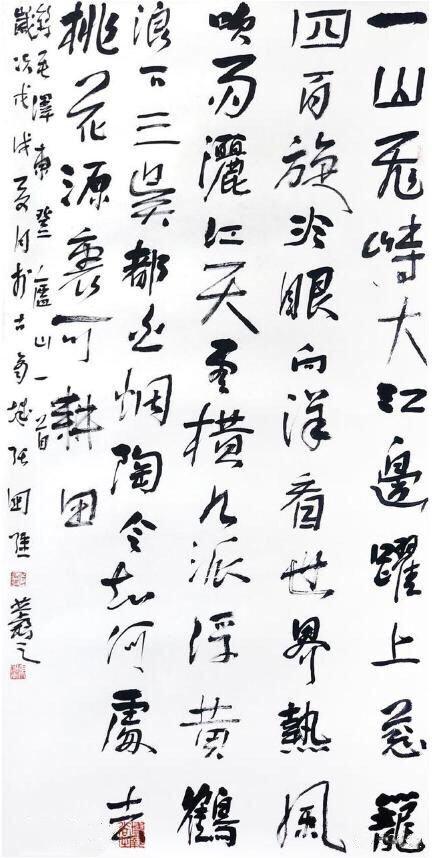 一山飛峙大江邊躍上葱蘢
四百旋冷眼向洋看世界熱風
吹雨灑江天雲橫九派浮黄鶴
浪下三吳都起烟陶令知何處去
桃花源裏可耕田
錄毛澤東登廬山一首
歲次戊戌夏月於古張国